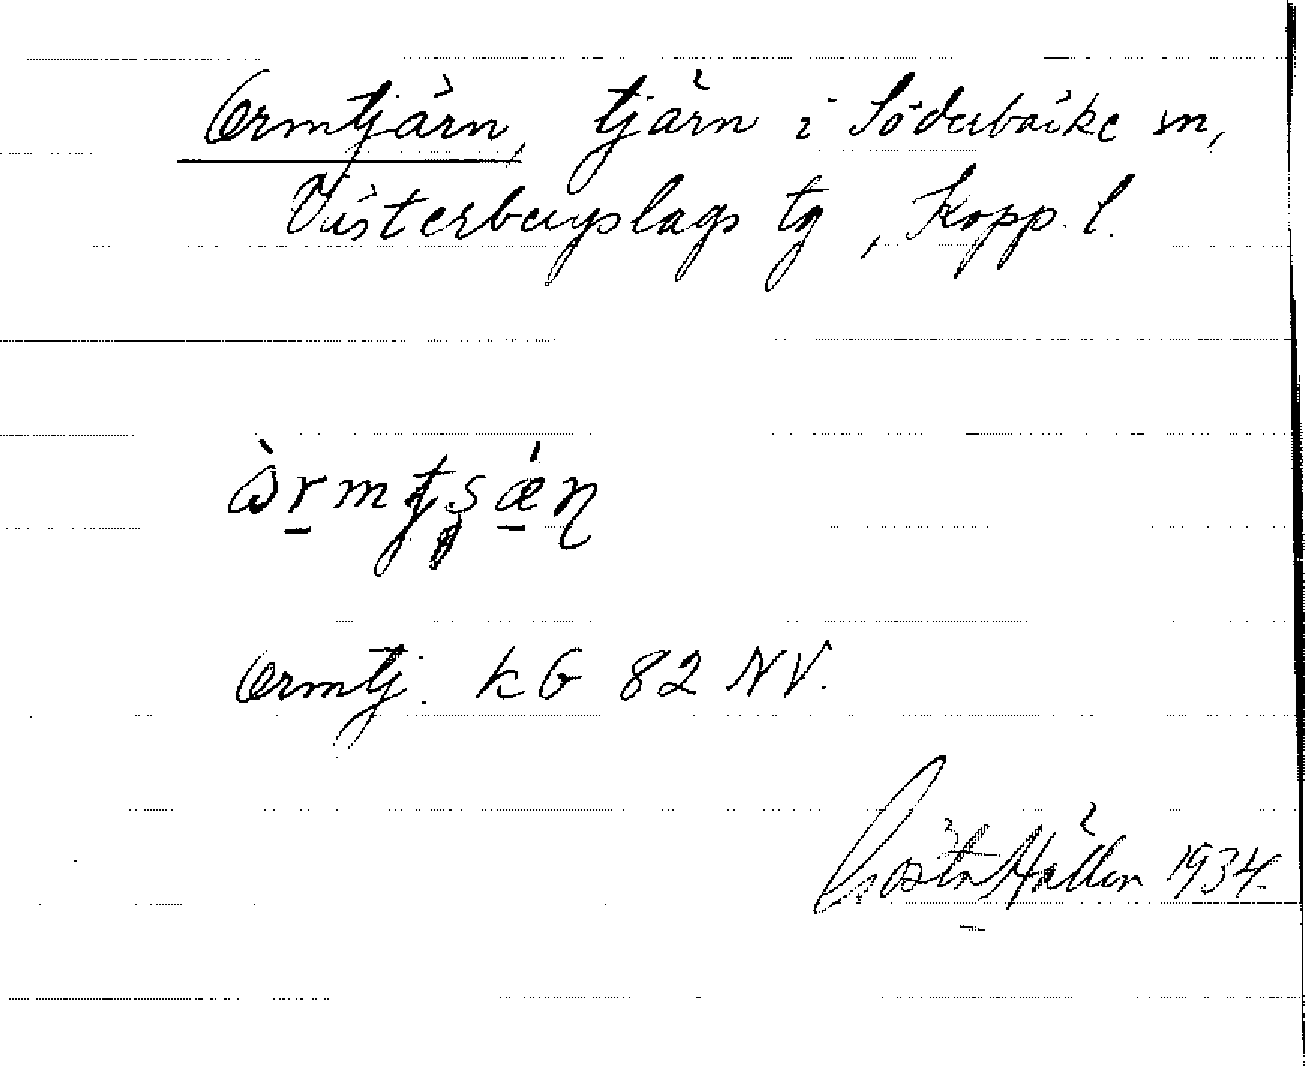 Ormtjärn, tjärn i Söderbärke sn,
Västerbergslags tg, Kopp. l.
Ormtj. kG 82 NV.
Gösta Hallén 1934.